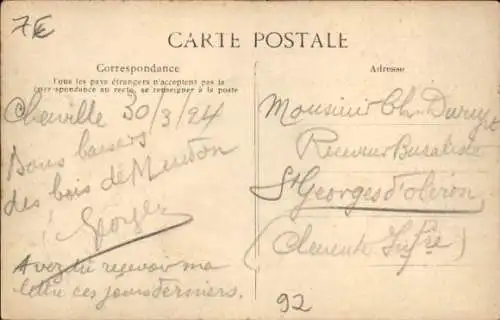 7€
CARTE POSTALE
Correspondance
Tous les pays étrangers n'acceptent pas la
correspondance au recto, se renseigner à la poste
Adresse
30/3/24
Bons baisers
des bois de Meudon
Georges
Avez dû recevoir ma
lettre ces jours derniers.
Monsieur Ch. Duruy
Receveur Buraliste
St Georges d'oléron
(Charente Infre)
92